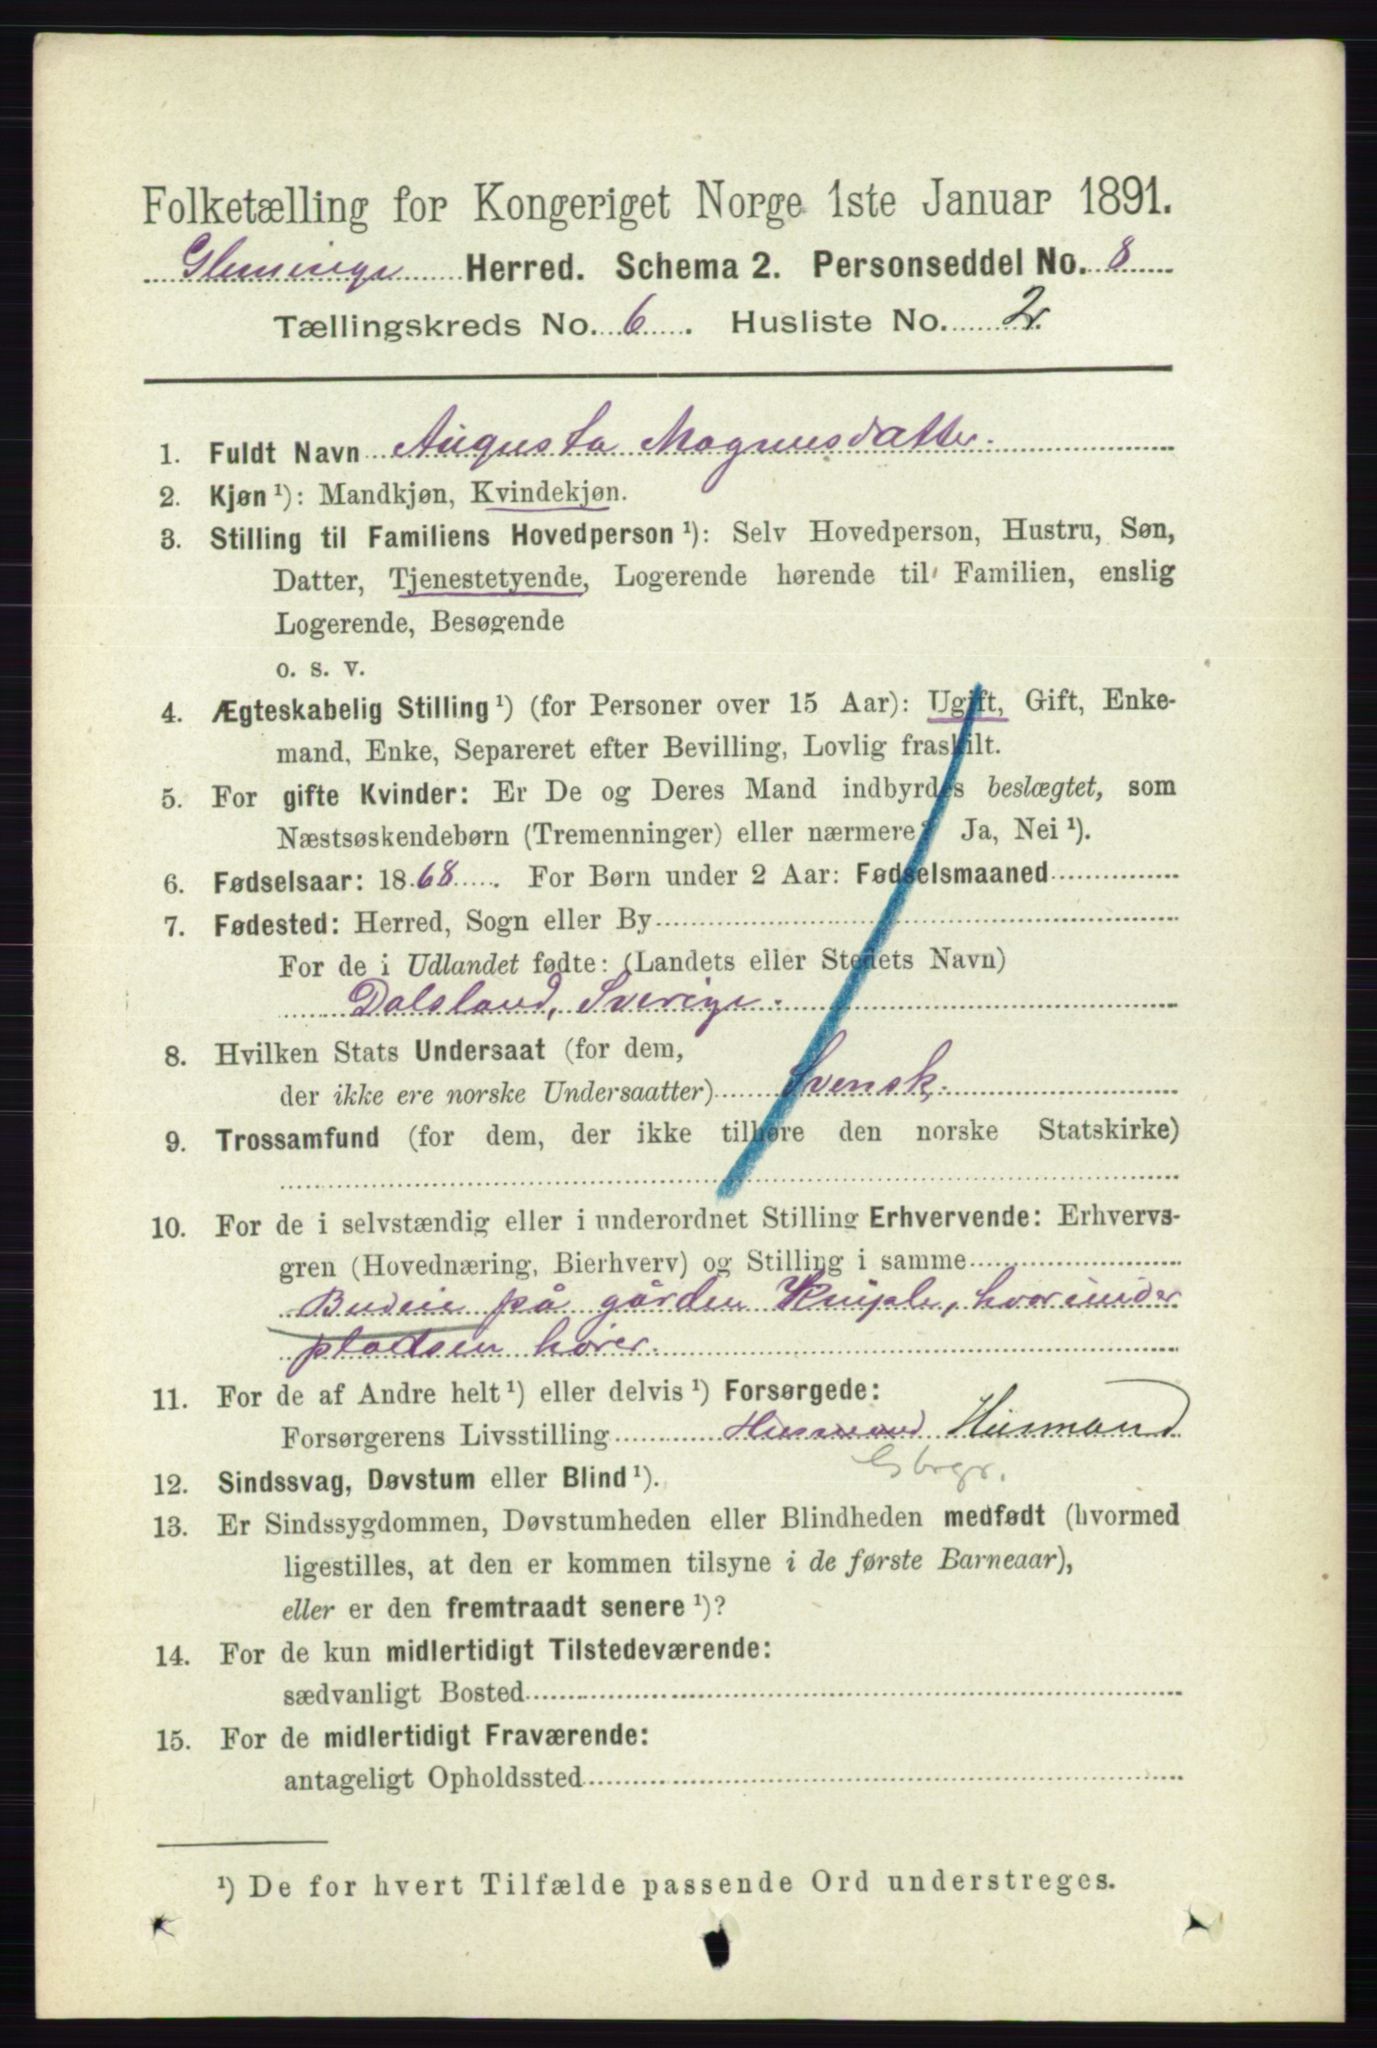 Folketælling for Kongeriget Norge 1ste Januar 1891.
Glemminge Herred. Schema 2. Personseddel No. 8
Tællingskreds No. 6. Husliste No. 2.
1. Fuldt Navn Augusta Magnusdatter.
2. Kjøn ¹): Mandkjøn, Kvindekjøn.
3. Stilling til Familiens Hovedperson ¹): Selv Hovedperson, Hustru, Søn,
Datter, Tjenestetyende, Logerende hørende til Familien, enslig
Logerende, Besøgende
o. s. v.
4. Ægteskabelig Stilling ¹) (for Personer over 15 Aar): Ugift, Gift, Enke-
mand, Enke, Separeret efter Bevilling, Lovlig fraskilt.
5. For gifte Kvinder: Er De og Deres Mand indbyrdes beslægtet, som
Næstsøskendebørn (Tremenninger) eller nærmere? Ja, Nei ¹).
6. Fødselsaar: 1868. For Børn under 2 Aar: Fødselsmaaned
7. Fødested: Herred, Sogn eller By
For de i Udlandet fødte: (Landets eller Stedets Navn)
Dalsland, Sverige.
8. Hvilken Stats Undersaat (for dem,
der ikke ere norske Undersaatter) Svensk.
9. Trossamfund (for dem, der ikke tilhøre den norske Statskirke)
10. For de i selvstændig eller i underordnet Stilling Erhvervende: Erhvervs-
gren (Hovednæring, Bierhverv) og Stilling i samme
Budeie på gården Kniple, hvorunder
pladsen hører.
11. For de af Andre helt ¹) eller delvis ¹) Forsørgede:
Forsørgerens Livsstilling Husmand Husmand
Gbrgr.
12. Sindssvag, Døvstum eller Blind ¹).
13. Er Sindssygdommen, Døvstumheden eller Blindheden medfødt (hvormed
ligestilles, at den er kommen tilsyne i de første Barneaar),
eller er den fremtraadt senere ¹)?
14. For de kun midlertidigt Tilstedeværende:
sædvanligt Bosted
15. For de midlertidigt Fraværende:
antageligt Opholdssted
¹) De for hvert Tilfælde passende Ord understreges.